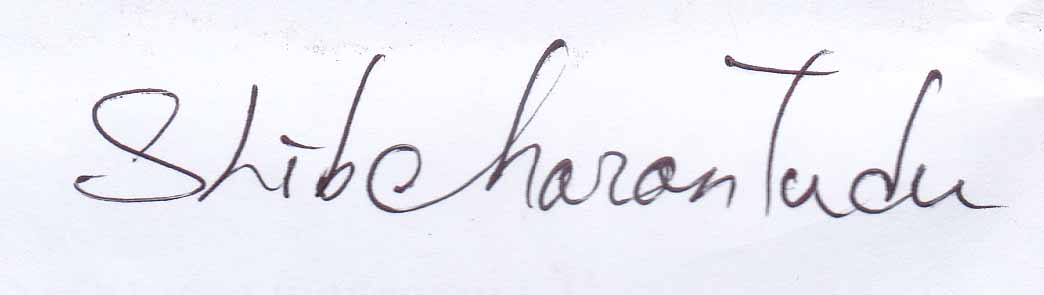 Shibcharan Tudu